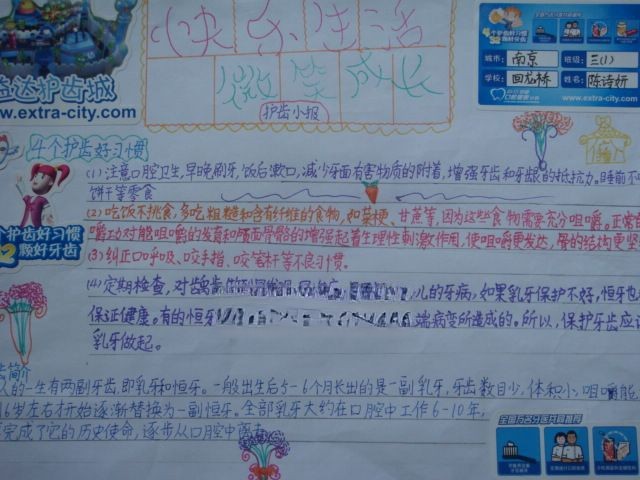 快乐生活
微笑成长
护齿小报
益达护齿城
www.extra-city.com
城市：南京 班级：三(1)
学校：回龙桥 姓名：陈诗妍
www.extra-city.com
4个护齿好习惯
(1) 注意口腔卫生，早晚刷牙，饭后漱口，减少牙面有害物质的附着，增强牙齿和牙龈的抵抗力。睡前不
饼干等零食
(2) 吃饭不挑食，多吃粗糙和含有纤维的食物，如菜梗、甘蔗等，因为这些食物需要充分咀嚼。正常的
嚼功对能咀嚼的发育和颌面骨骼的增强起着生理性刺激作用，使咀嚼更发达，骨的结构更坚
(3) 纠正口呼吸、咬手指、咬笔杆等不良习惯。
个护齿好习惯
颗好牙齿
(4) 定期检查，对龋齿 儿的牙病，如果乳牙保护不好，恒牙也
保证健康。有的恒牙 端病变所造成的。所以，保护牙齿应
乳牙做起。
齿简介
人的一生有两副牙齿，即乳牙和恒牙。一般出生后5-6个月长出的是一副乳牙，牙齿数目少，体积小，咀嚼能
6岁左右才开始逐渐替换为一副恒牙。全部乳牙大约在口腔中工作6-10年，
完成了它的历史使命，逐步从口腔中离去